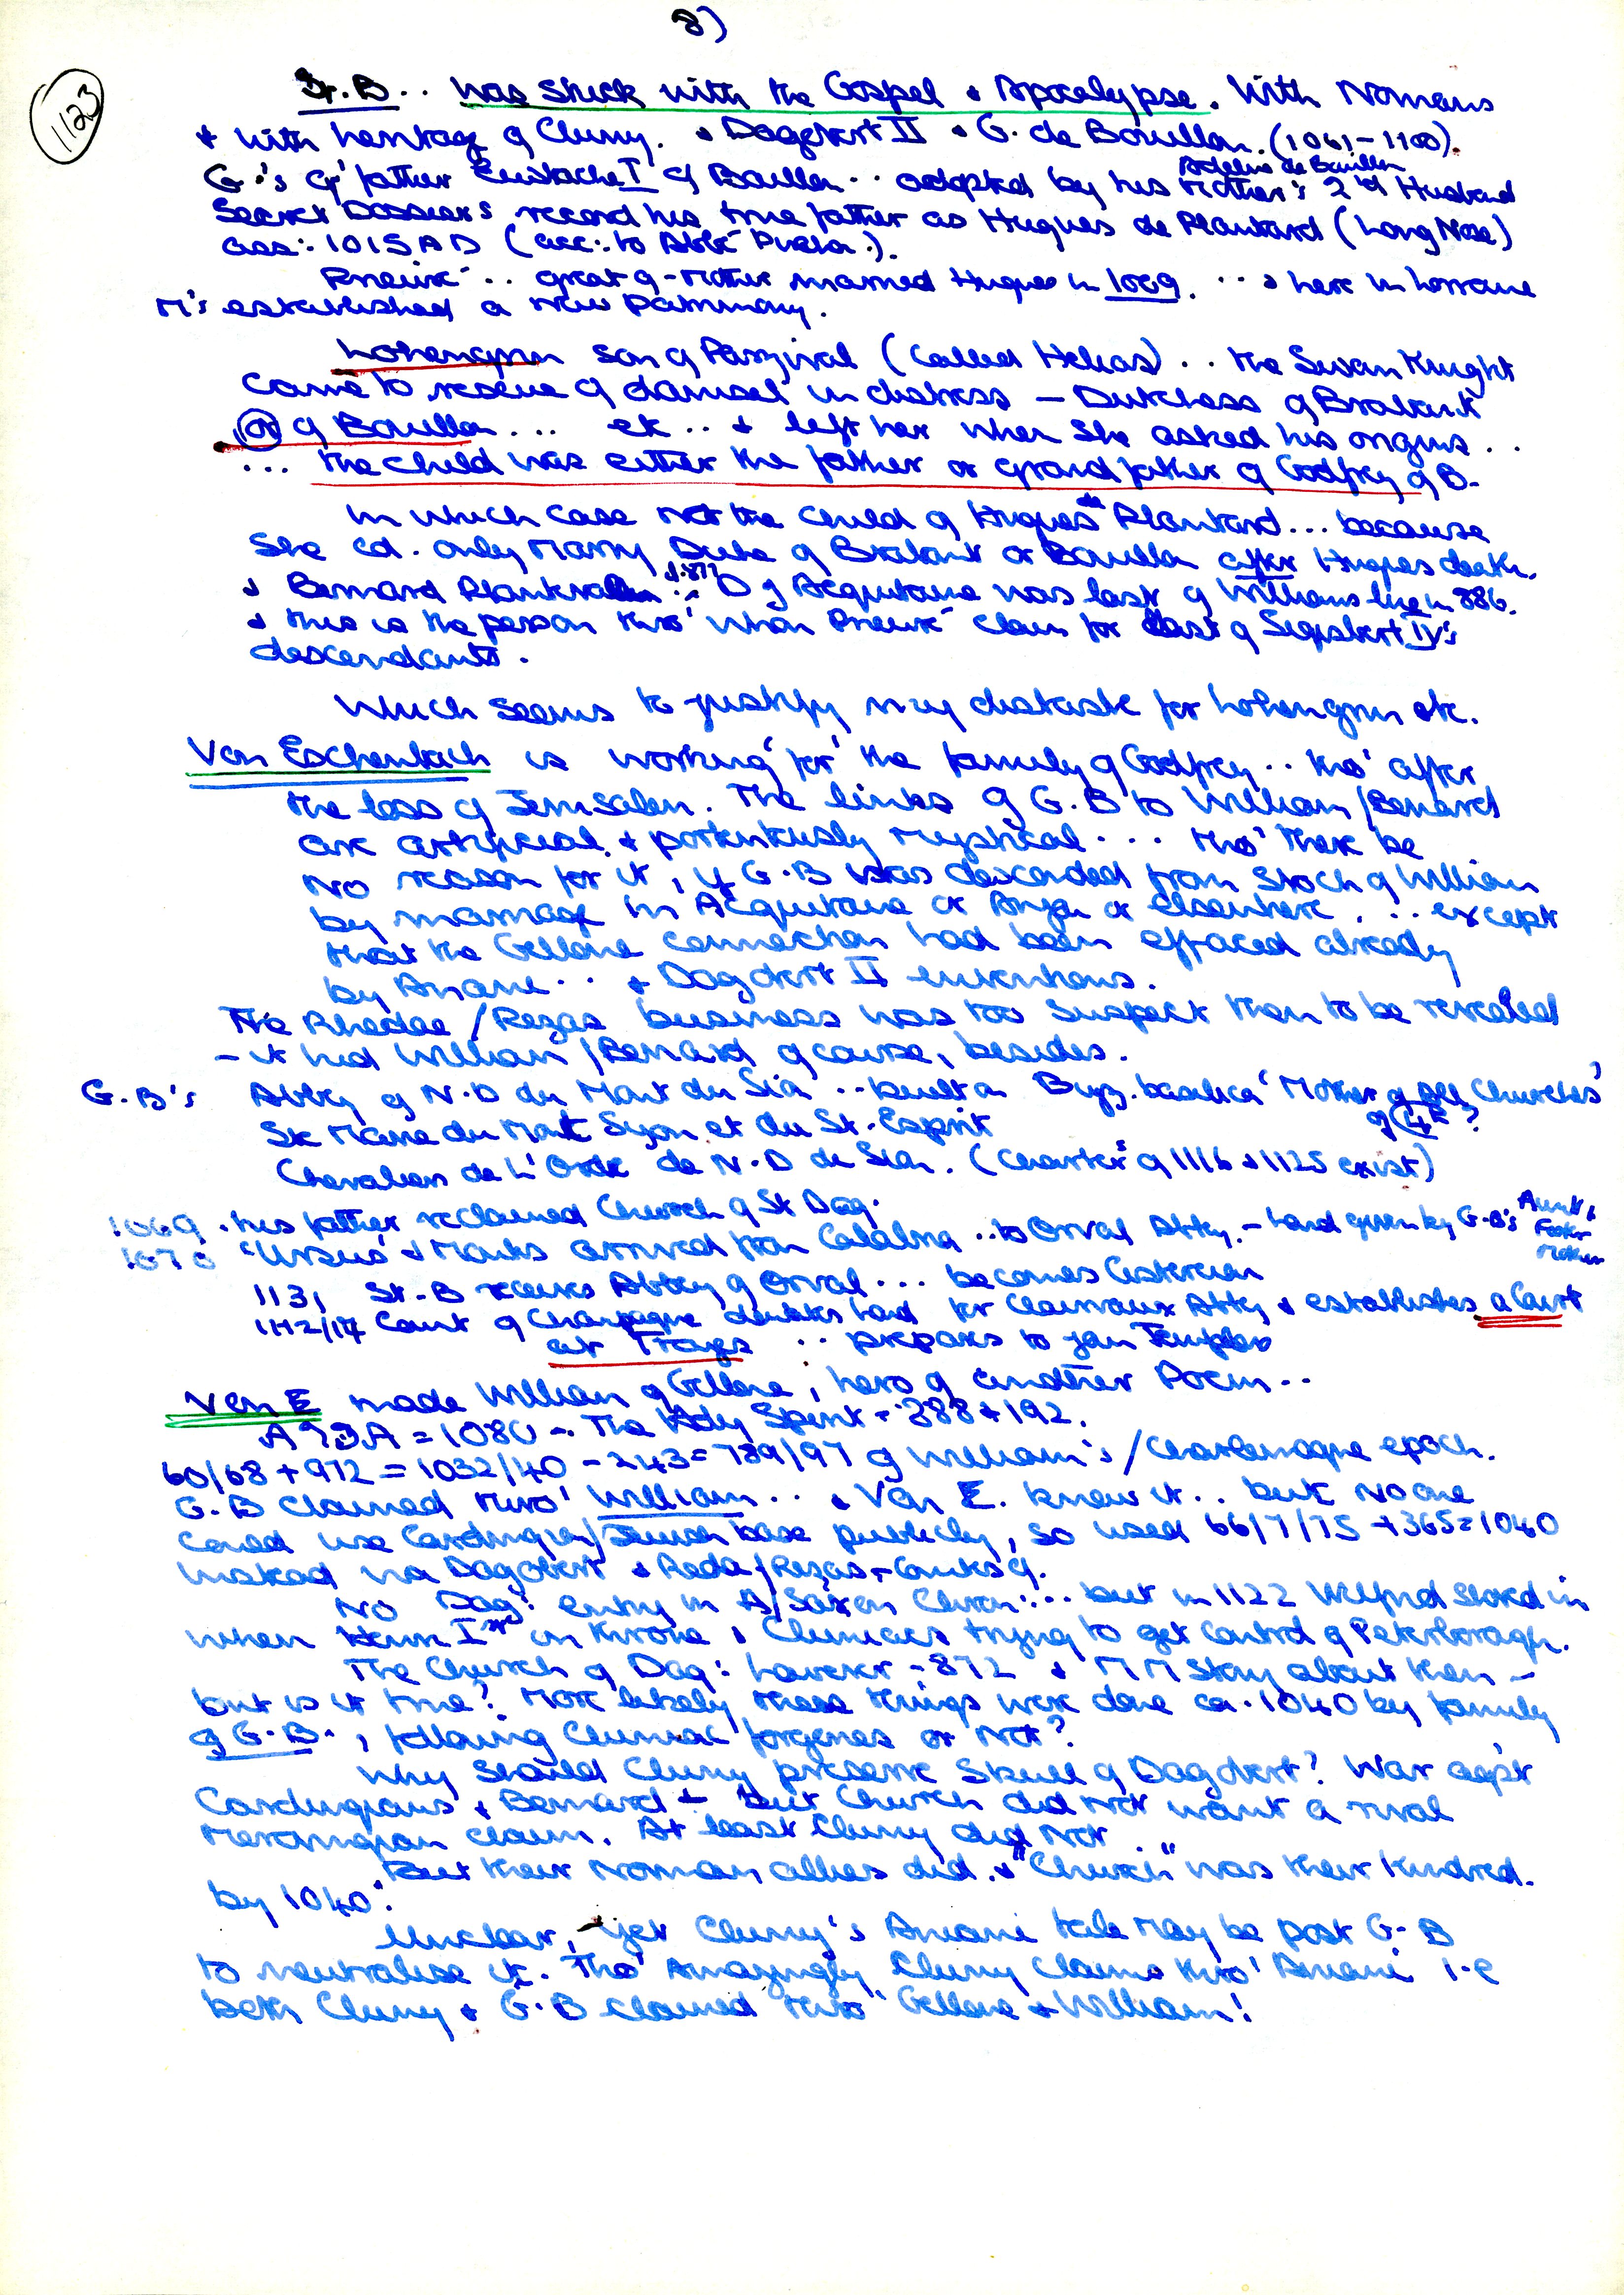 8)
1123
St. B .. was stuck with the Gospel & Apocalypse. With Normans
& with heritage of Cluny. & Dagobert II & G. de Bouillon. (1061-1100).
Adeline de Bouillon
G.'s Gr' father Eustache I of Bouillon .. adopted by his Mother's 2nd Husband
Secret Dossiers record his true father as Hugues de Plantard (Long Nose)
ass: 1015 AD (acc: to Abbé).
Prieuré .. great g-mother married Hugues in 1009. ... & here in Lorraine
M's established a new Patrimony.
Lohengrin son of Parzival (called Helias) .. the Swan Knight
came to rescue of 'damsel' in distress - Dutchess of Brabant
(or) of Bouillon ... etc .. & left her when she asked his origins ..
... the child was either the father or grandfather of Godfrey of B.
In which case not the child of Hugues de Plantard ... because
She cd. only marry Duke of Brabant or Bouillon after Hugues death.
d. 877
& Bernard : D of Acquitaine was last of Williams line in 886.
& this is the person thro' whom Prieuré claim for last of Sigisbert IV's
descendants.
Which seems to justify my distaste for Lohengrin etc.
Von Eschenbach is working 'for' the family of Godfrey .. tho' after
the loss of Jerusalem. The links of G.B to William/Bernard
are artificial & portentously mystical ... tho' there be
No reason for it, if G.B was descended from stock of William
by marriage in Acquitaine or Anjou or elsewhere ... except
that the Gellone connection had been effaced already
by Aniane .. & Dagobert II inventions.
The Rhedae/Rezas business was too suspect then to be revealed
- it hid William/Bernard of course, besides.
G.B's Abbey of N.D du Mont du Sion .. built on Byz. basilica 'Mother of all Churches'
of C4th ?
Ste Marie du Mont Syon et du St. Esprit
Chevaliers de L'Ordre de N.D de Sion. (Charters of 1116 & 1125 exist)
1069 . his father reclaimed Church of St Dag.
1070 'Ursus' & Monks arrived from Calabria .. to Orval Abbey. - land given by G.B's Aunt &
Foster
Mother
1131 St. B receives Abbey of Orval ... becomes Cistercian
1112/14 Count of Champagne donates land for Clairvaux Abbey & establishes a Court
at Troyes .. prepares to join Templars
Von E made William of Gellone, hero of another Poem ..
= 1080 - The Holy Spirit = 888 + 192.
60/68 + 972 = 1032/40 - 243 = 789/97 of William's/Charlemagne epoch.
G.B claimed thro' William .. & Von E. knew it .. but no one
could use Carolingian/Jewish base publicly, so used 667/75 + 365 = 1040
instead via Dagobert & Reda/Rezas - Counts of.
No Dag: entry in A/Saxon Chron: ... but in 1122 Wilfrid stood in
when Henri Ist on throne & Cluniacs trying to get control of Peterborough.
The Church of Dag: however - 872 & MM story about then -
but is it true? More likely these things were done ca. 1040 by family
of G.B. , following Cluniac forgeries or not?
Why should Cluny preserve Skull of Dagobert? War agst
Carolingians & Bernard - but Church did not want a rival
Merovingian claim. At least Cluny did not ..
But their Norman allies did. & "Church" was their kindred.
by 1040.
Unclear, - yet Cluny's Aniane tale may be post G.B
to neutralise it. Tho' Amazingly Cluny claims thro' Aniane i.e
both Cluny & G.B claimed thro' Gellone & William!